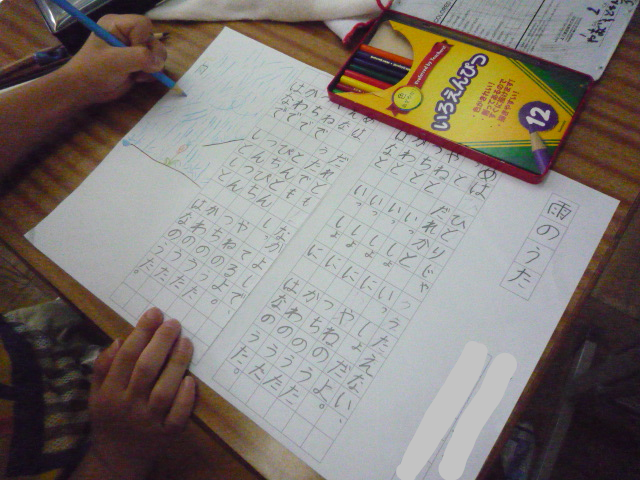 雨のうた
めは ひとりじゃ うたえない、
だれかと いっしょだよ。
やねと いっしょに やねのうた
つちと いっしょに つちのうた
かわと いっしょに かわのうた
はなと いっしょに はなのうた。
めは だれとも なかよしで、
な うたでも しってるよ。
やねで とんとん やねのうた
つちで ぴちぴち つちのうた
かわで つんつん かわのうた
はなで しとしと はなのうた。
いろえんぴつ
12